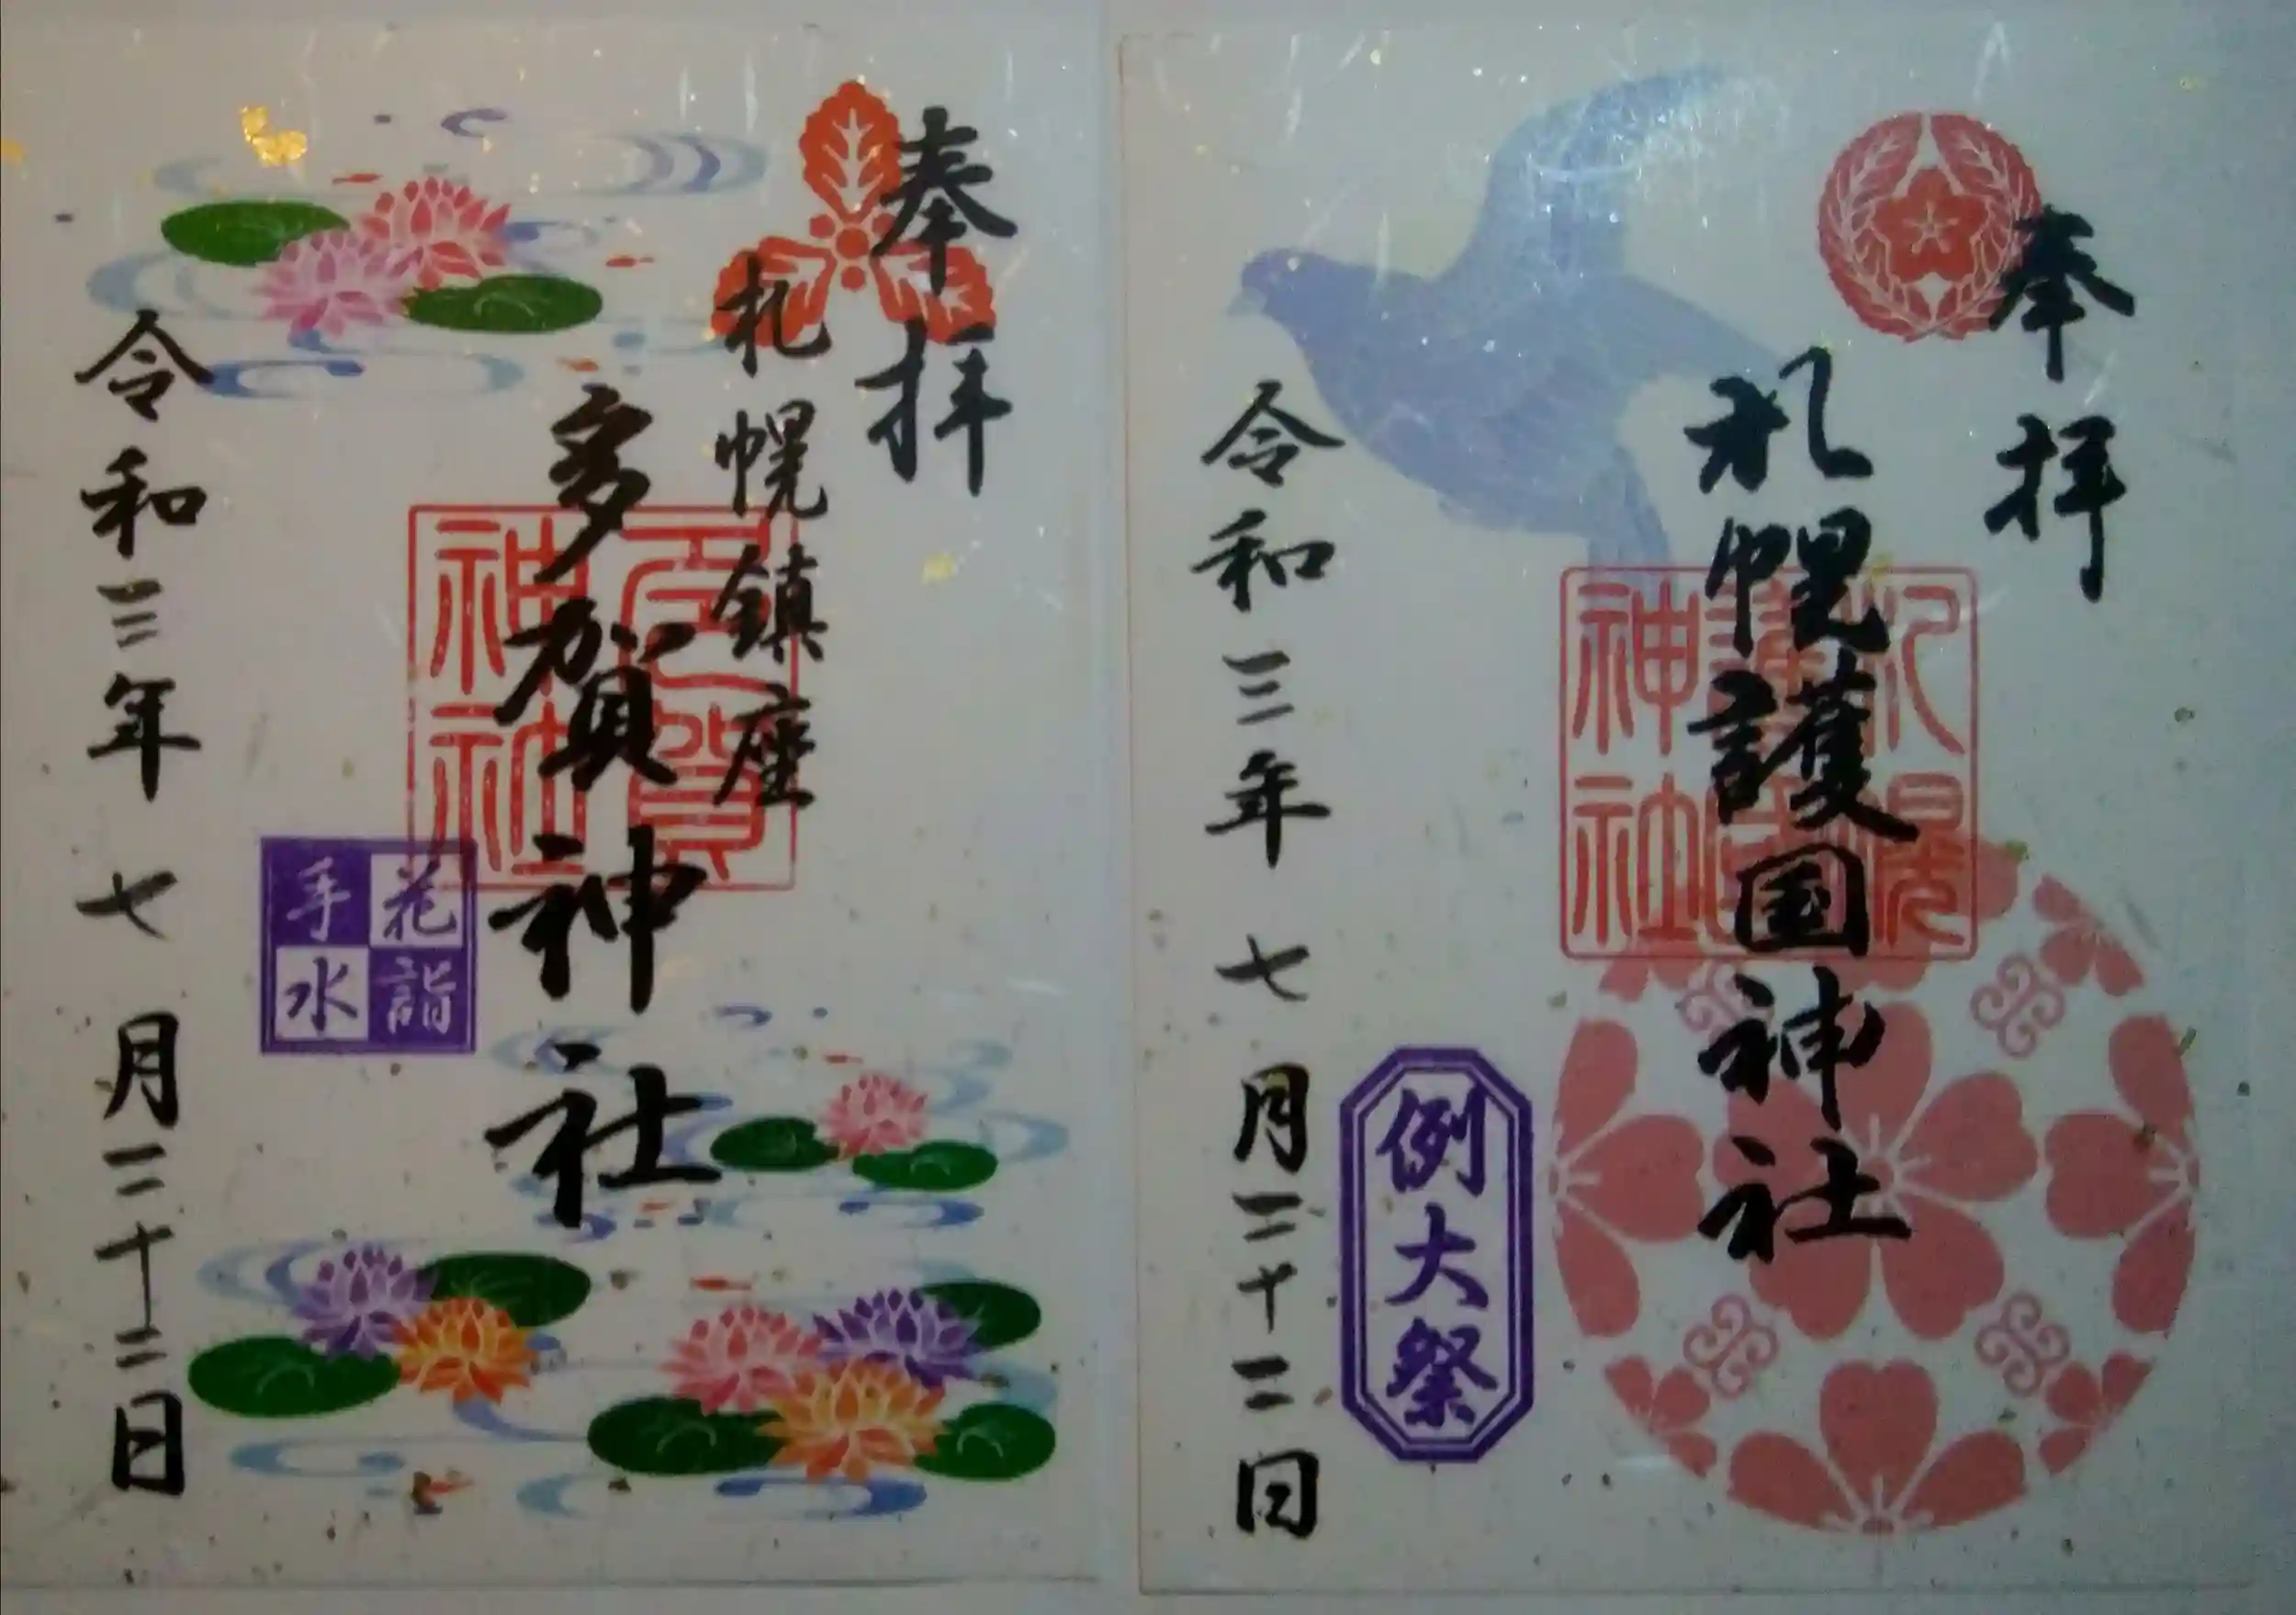 奉拝
札幌護国神社
札幌護國神社
例大祭
令和三年七月二十二日
奉拝
札幌鎮座
多賀神社
多賀神社
花詣
手水
令和三年七月二十二日